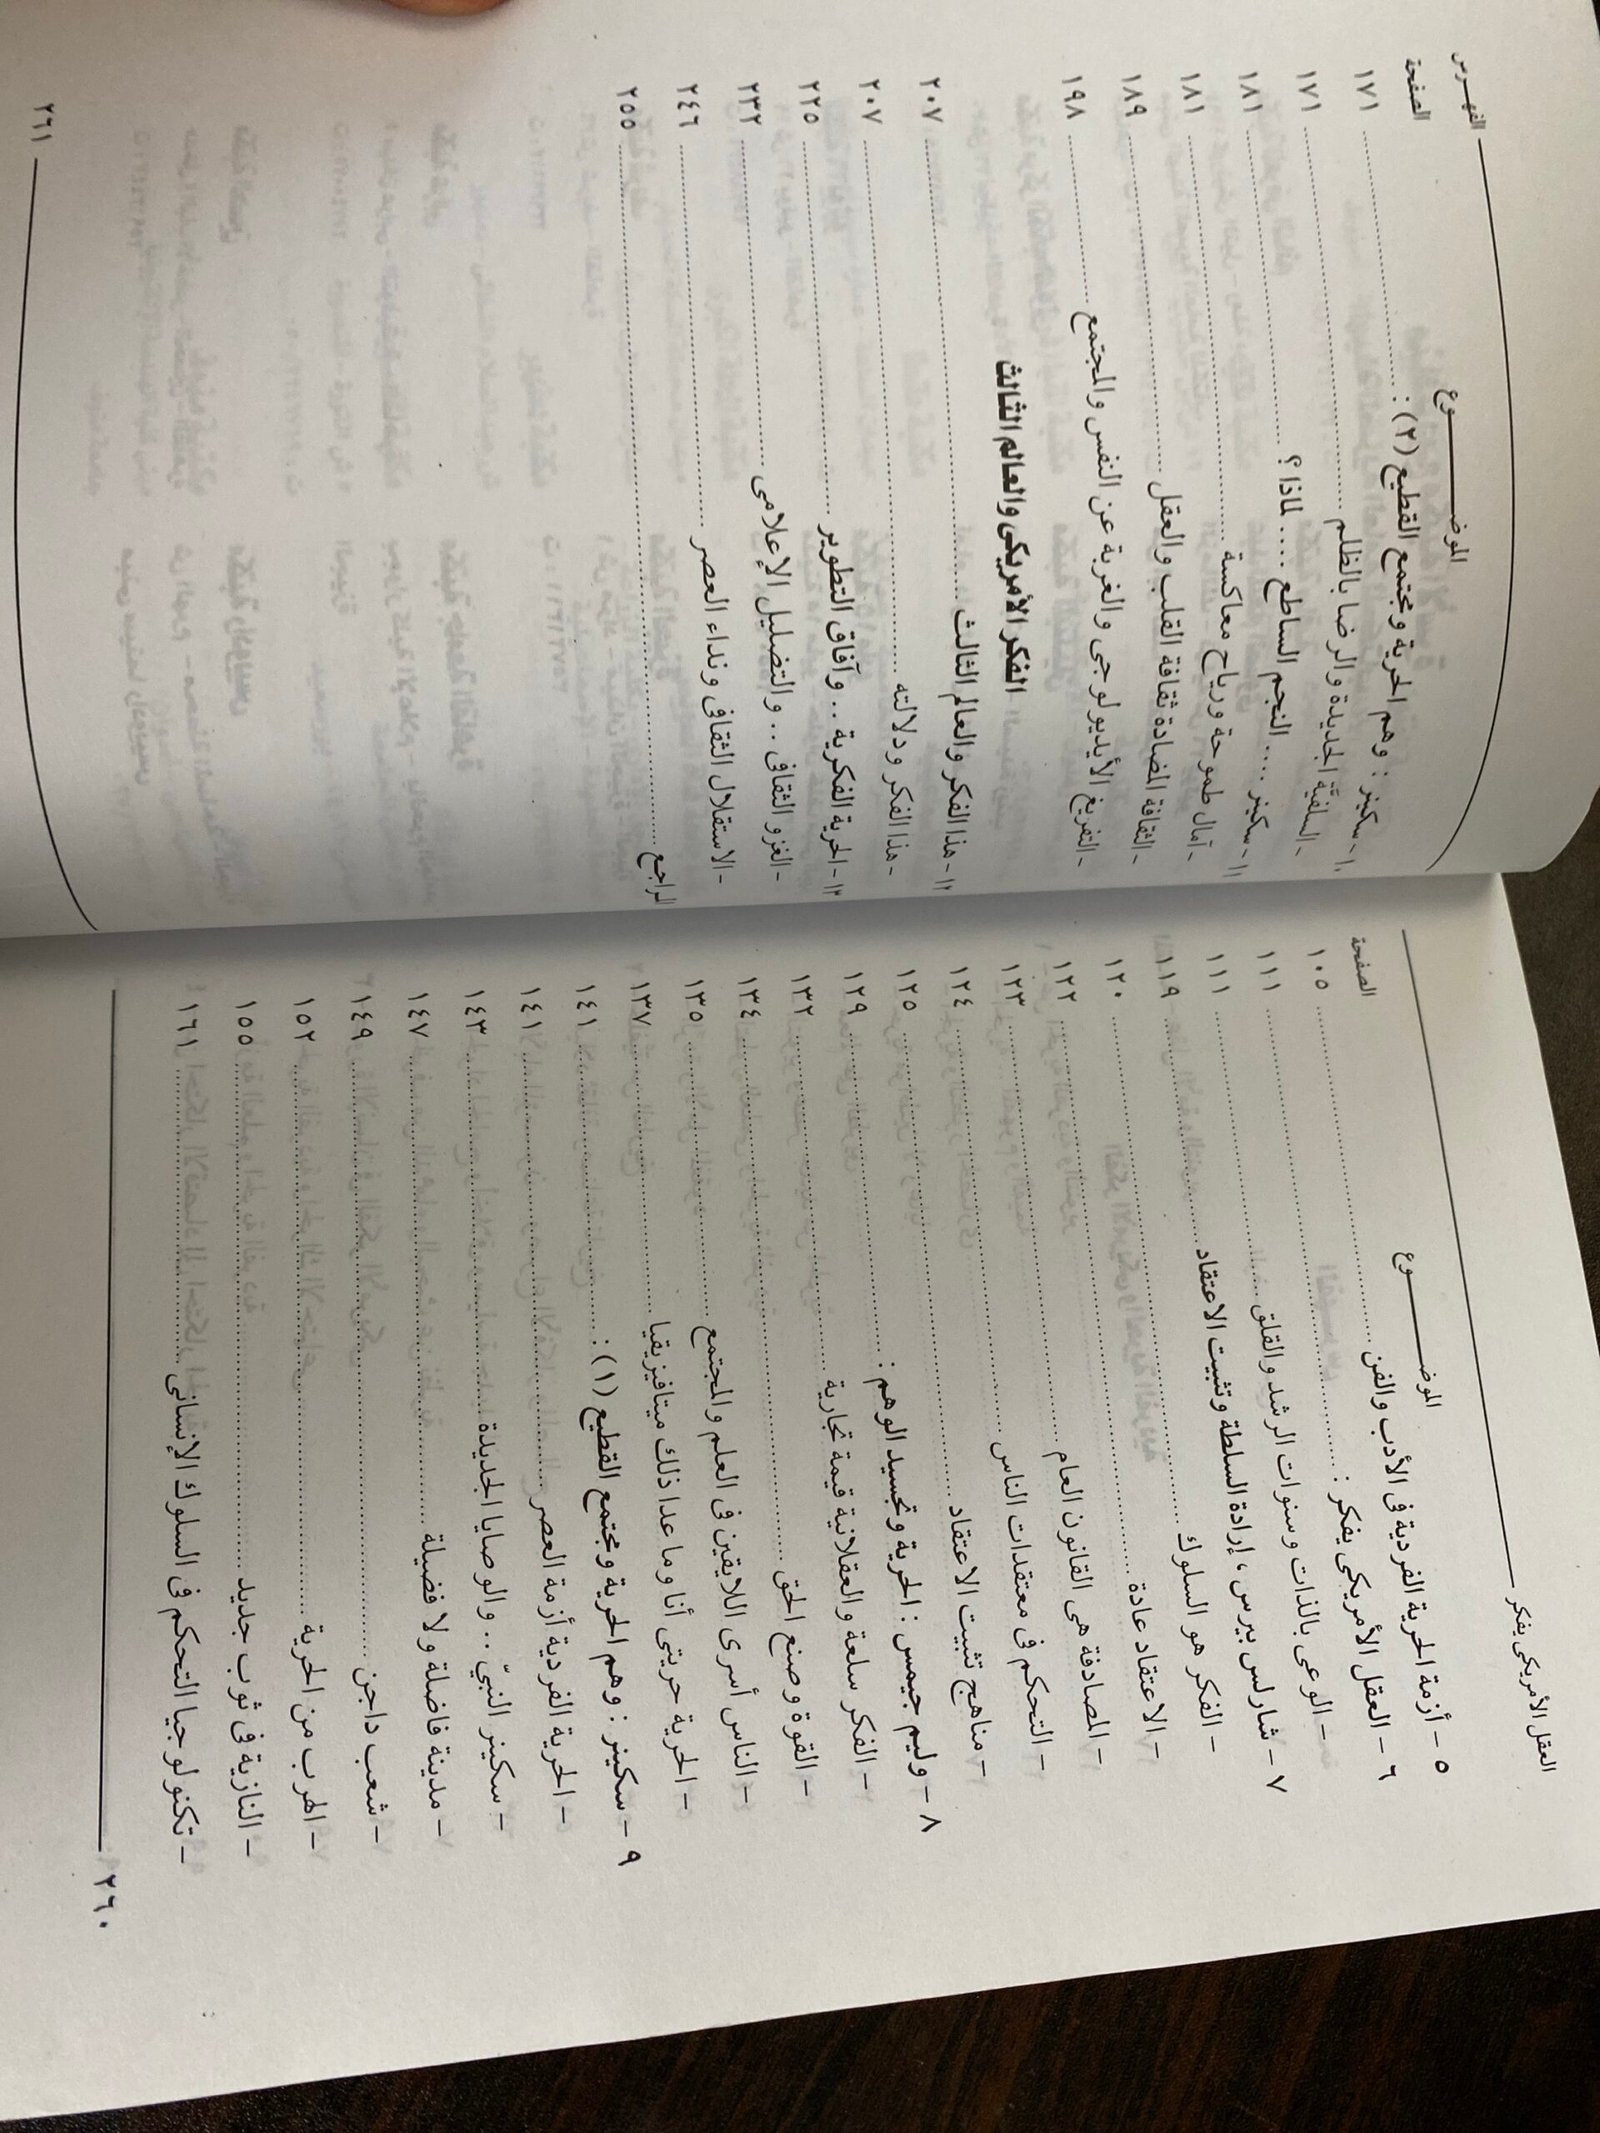 العقل الأمريكى يفكر
الموضـــــــوع الصفحة
٥ - أزمة الحرية الفردية فى الأدب والفن ........ ١٠٥
٦ - العقل الأمريكى يفكر : ........ ١١١
- الوعى بالذات وسنوات الرشد والقلق ........ ١١١
٧ - شارلس بيرس ، إرادة السلطة وتثبيت الاعتقاد ........ ١١٩
- الفكر هو السلوك ........ ١٢٠
- الاعتقاد عادة ........ ١٢٢
- المصادفة هى القانون العام ........ ١٢٣
- التحكم فى معتقدات الناس ........ ١٢٤
- مناهج تثبيت الاعتقاد ........ ١٢٥
٨ - وليم جيمس : الحرية وتجسيد الوهم : ........ ١٢٩
- الفكر سلعة والعقلانية قيمة تجارية ........ ١٣٢
- القوة وصنع الحق ........ ١٣٤
- الناس أسرى اللايقين فى العلم والمجتمع ........ ١٣٥
- الحرية حريتى أنا وما عدا ذلك ميتافيزيقيا ........ ١٣٧
٩ - سكينر : وهم الحرية ومجتمع القطيع (١) : ........ ١٤١
- الحرية الفردية أزمة العصر ........ ١٤١
- سكينر النبىّ .. والوصايا الجديدة ........ ١٤٣
- مدينة فاضلة ولا فضيلة ........ ١٤٧
- شعب داجن ........ ١٤٩
- الهرب من الحرية ........ ١٥٢
- النازية فى ثوب جديد ........ ١٥٥
- تكنولوجيا التحكم فى السلوك الإنسانى ........ ١٦١
٢٦٠
الفهرس
الموضـــــــوع الصفحة
١٠ - سكينر : وهم الحرية ومجتمع القطيع (٢) : ........ ١٧١
- السلفيَّة الجديدة والرضا بالظلم ........ ١٧١
١١ - سكينر .... النجم الساطع .... لماذا ؟ ........ ١٨١
- آمال طموحة ورياح معاكسة ........ ١٨١
- الثقافة المضادة ثقافة القلب والعقل ........ ١٨٩
- التفريغ الأيديولوجى والغربة عن النفس والمجتمع ........ ١٩٨
الفكر الأمريكى والعالم الثالث
١٢ - هذا الفكر والعالم الثالث ........ ٢٠٧
- هذا الفكر ودلالته ........ ٢٠٧
١٣ - الحرية الفكرية .. وآفاق التطوير ........ ٢٢٥
- الغزو الثقافى .. والتضليل الإعلامى ........ ٢٣٢
- الاستقلال الثقافى ونداء العصر ........ ٢٤٦
المراجع ........ ٢٥٥
٢٦١